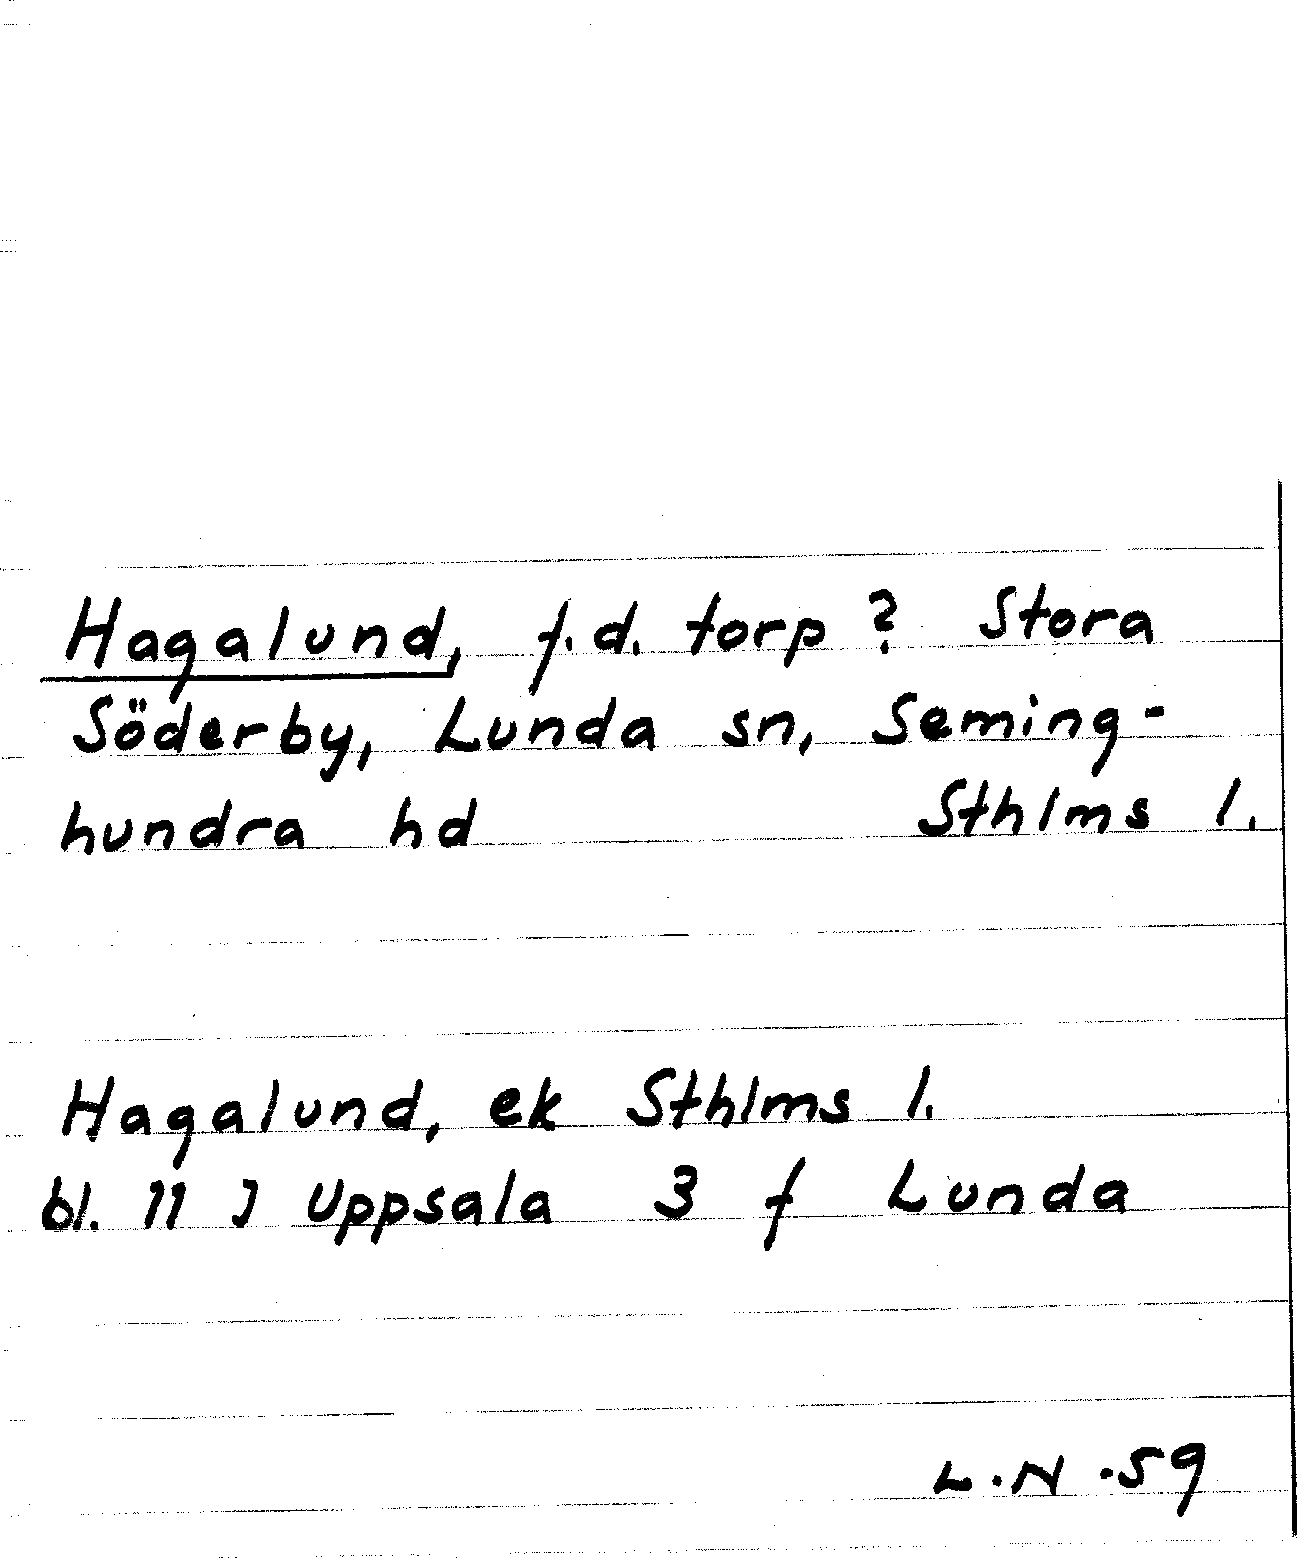 Hagalund, f.d. torp? Stora
Söderby, Lunda sn, Seming-
hundra hd Sthlms l.
Hagalund, ek Sthlms l.
bl. 11 J Uppsala 3 f Lunda
L.N.59